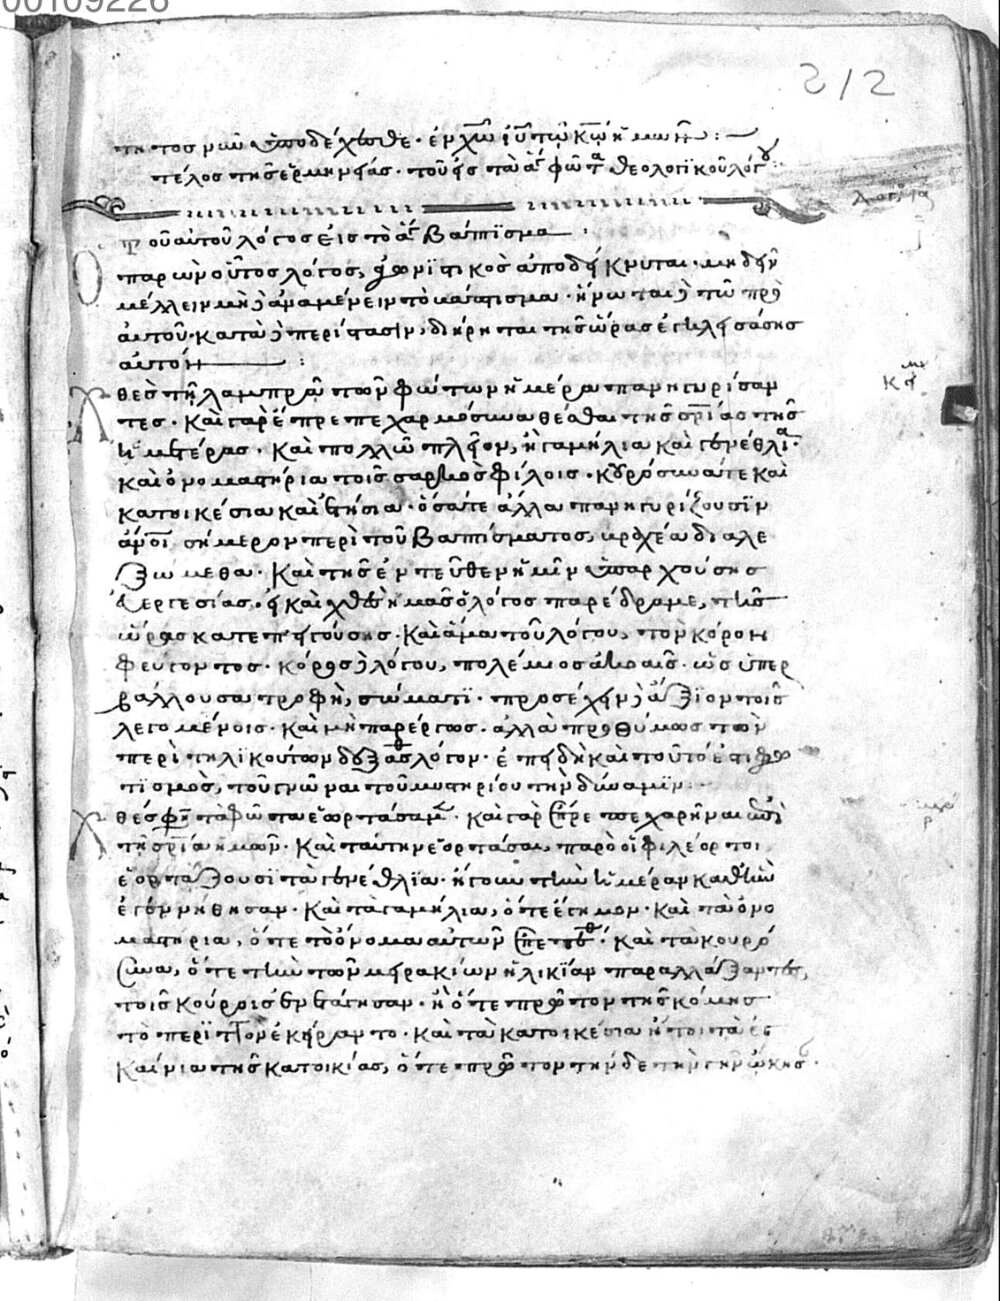 00109226
212
τητος ἡμῶν ὑποδέχεσθε· ἐν χῶ ιῦ τῶ κῶ ἡμῶν :
τέλος τῆς ἑρμηνείας· τοῦ εἰς τὰ ἅγ φῶτ θεολογικοῦ λόγου
Τοῦ αὐτοῦ λόγος εἰς τὸ ἅγ βάπτισμα
Ὁ παρὼν οὗτος λόγος, προτρεπτικὸς ἀποδείκνυται· μηδὲν
μέλλειν μὴδ ἀναμένειν τὸ βάπτισμα·
αὐτοῦ· κατὰ δ περίστασιν, διήρηται τῆς ὥρας ἐπιλησάσης
αὐτόν :
Χθὲς τῇ λαμπρᾷ τῶν φώτων ἡμέρᾳ πανηγυρίσαν
τες· καὶ γὰρ ἔπρεπε χαρμόσυνα θέσθαι τῆς σρίας τῆς
ἡμετέρας· καὶ πολλῶ πλεῖον, ἢ γαμήλια καὶ γενέθλια·
καὶ ὀνομαστήρια τοῖς σαρκὸς φίλοις· κουρόσυνά τε καὶ
κατοικέσια καὶ ἐτήσια· ὅσα τε ἄλλα πανηγυρίζουσιν
ἄνοι, σήμερον περὶ τοῦ βαπτίσματος, βραχέα διαλε
ξώμεθα· καὶ τῆς ἐντεῦθεν ἡμῖν ὑπαρχούσης
εὐεργεσίας· εἰ καὶ χθὲς ἡμᾶς ὁ λόγος παρέδραμε, τῆς
ὥρας κατεπειγούσης· καὶ ἅμα τοῦ λόγου, τὸν κόρον
φεύγοντος· κόρος δ λόγου, πολέμιος ἀκοαῖς· ὡς ὑπερ
βάλλουσα τροφὴ, σώματι· προσέχειν δ ἄξιον τοῖς
λεγομένοις· καὶ μὴ παρέργως· ἀλλὰ προθύμως τὸν
περὶ τηλικούτων δέξασθ λόγον· ἐπειδὴ καὶ τοῦτό ἐστι φω
τισμὸς, τοῦ γνῶναι τοῦ μυστηρίου τὴν δύναμιν:
Χθές φη τὰ φῶτα ἑωρτάσαμ· καὶ γὰρ ἔπρεπε χαρῆναι
τῆ σρία ἡμῶν· καὶ ταύτην ἑορτάσαι, παρὸ οἱ φιλέορτοι
ἑορτάζουσι τὰ γενέθλια· ἤγουν τὴν ἡμέραν καθ ἣν
ἐγεννήθησαν· καὶ τὰ γαμήλια, ὅτε ἔγημον· καὶ τὰ ὀνο
μαστήρια, ὅτε τὸ ὄνομα αὐτῶν ἐπετέθ· καὶ τὰ κουρό
συνα, ὅτε τὴν τῶν μειρακίων ἡλικίαν παραλλάξαντες,
τοῖς κούροις ἐνέβησαν· ἢ ὅτε πρῶτον τῆς κόμης
τὸ περιττὸν ἐκείραντο· καὶ τὰ κατοικέσια ἤτοι τὰ ἐγ
καίνια τῆς κατοικίας, ὅτε πρῶτον τήνδε τὴν γῆν ὤκησ·